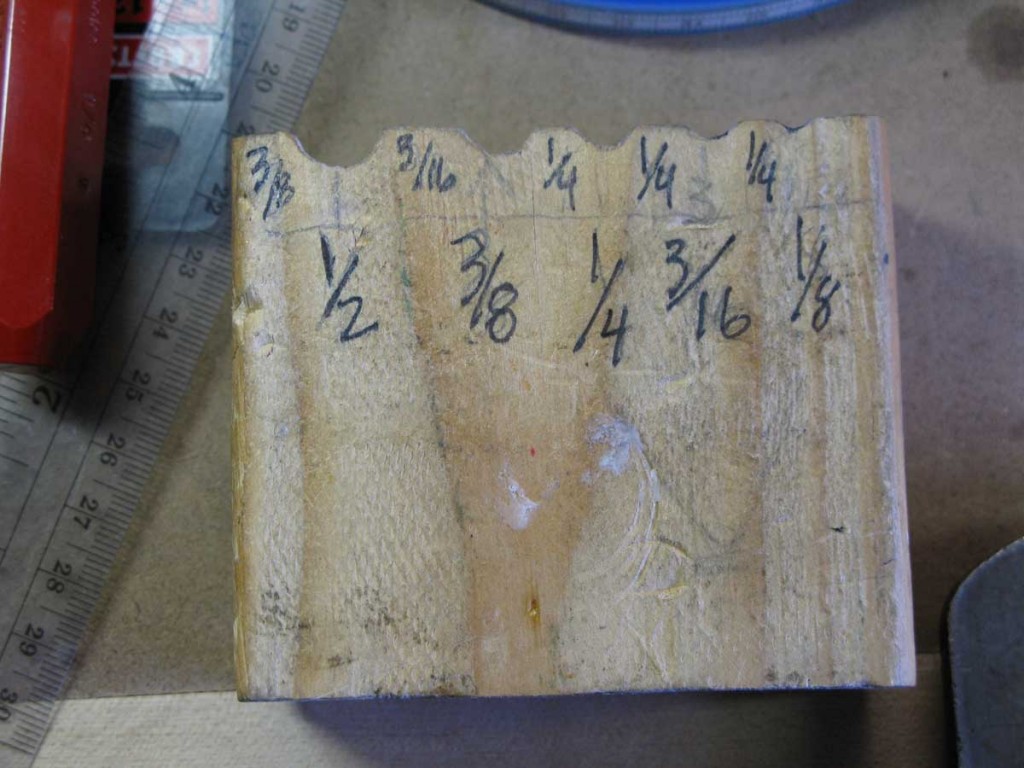 3/8 3/16 1/4 1/4 1/4
1/2 3/8 1/4 3/16 1/8
19
20
22
23
24
25
26
27
28
29
30
2